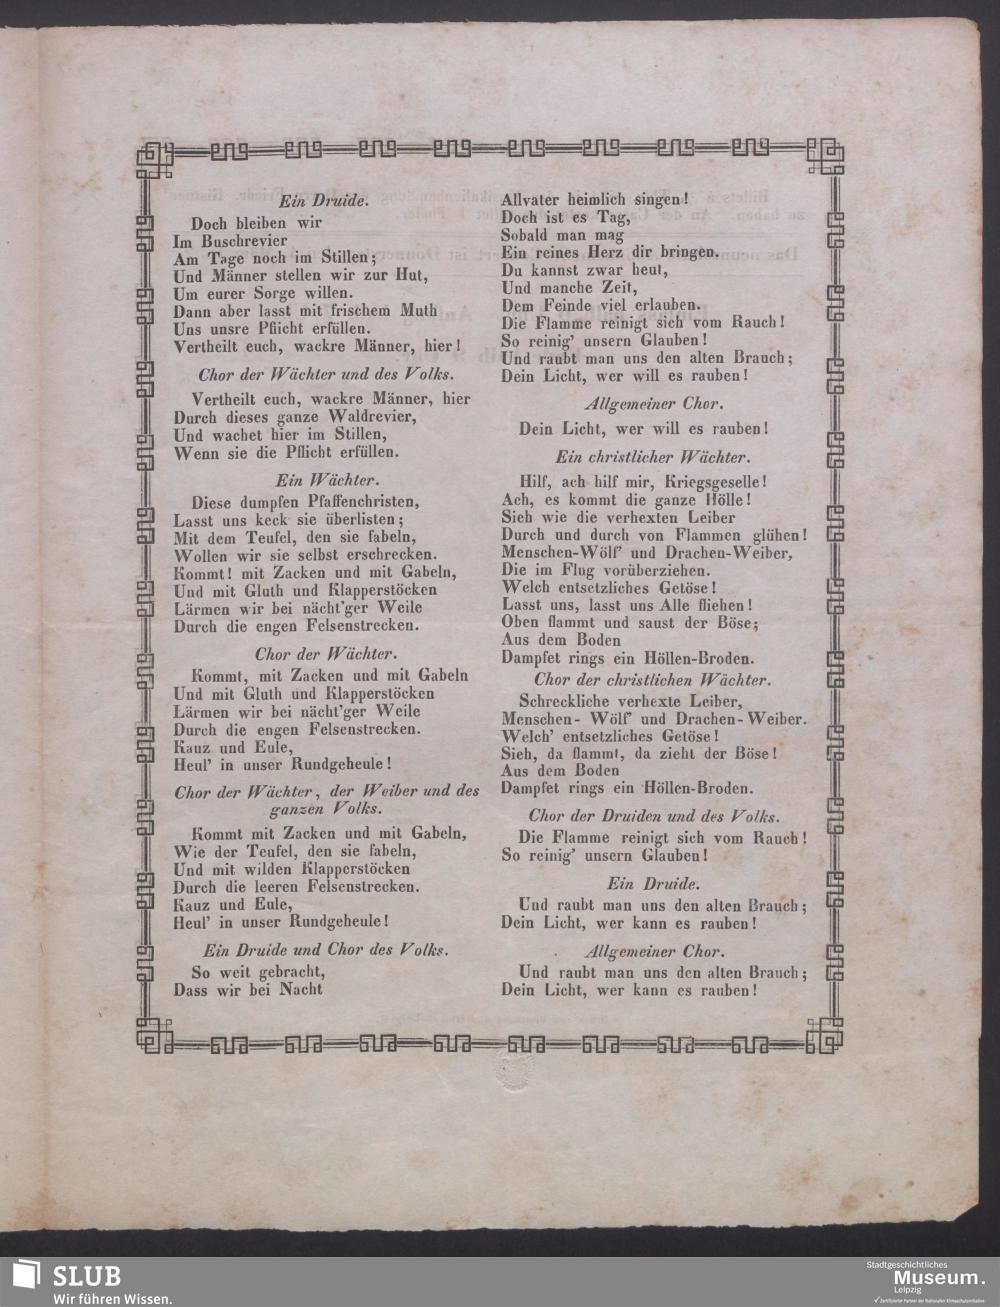 Ein Druide.
Doch bleiben wir
Im Buschrevier
Am Tage noch im Stillen;
Und Männer stellen wir zur Hut,
Um eurer Sorge willen.
Dann aber lasst mit frischem Muth
Uns unsre Pflicht erfüllen.
Vertheilt euch, wackre Männer, hier!
Chor der Wächter und des Volks.
Vertheilt euch, wackre Männer, hier
Durch dieses ganze Waldrevier,
Und wachet hier im Stillen,
Wenn sie die Pflicht erfüllen.
Ein Wächter.
Diese dumpfen Pfaffenchristen,
Lasst uns keck sie überlisten;
Mit dem Teufel, den sie fabeln,
Wollen wir sie selbst erschrecken.
Kommt! mit Zacken und mit Gabeln,
Und mit Gluth und Klapperstöcken
Lärmen wir bei nächt'ger Weile
Durch die engen Felsenstrecken.
Chor der Wächter.
Kommt, mit Zacken und mit Gabeln
Und mit Gluth und Klapperstöcken
Lärmen wir bei nächt'ger Weile
Durch die engen Felsenstrecken.
Kauz und Eule,
Heul' in unser Rundgeheule!
Chor der Wächter, der Weiber und des
ganzen Volks.
Kommt mit Zacken und mit Gabeln,
Wie der Teufel, den sie fabeln,
Und mit wilden Klapperstöcken
Durch die leeren Felsenstrecken.
Kauz und Eule,
Heul' in unser Rundgeheule!
Ein Druide und Chor des Volks.
So weit gebracht,
Dass wir bei Nacht
Allvater heimlich singen!
Doch ist es Tag,
Sobald man mag
Ein reines Herz dir bringen.
Du kannst zwar heut,
Und manche Zeit,
Dem Feinde viel erlauben.
Die Flamme reinigt sich vom Rauch!
So reinig' unsern Glauben!
Und raubt man uns den alten Brauch;
Dein Licht, wer will es rauben!
Allgemeiner Chor.
Dein Licht, wer will es rauben!
Ein christlicher Wächter.
Hilf, ach hilf mir, Kriegsgeselle!
Ach, es kommt die ganze Hölle!
Sieh wie die verhexten Leiber
Durch und durch von Flammen glühen!
Menschen-Wölf' und Drachen-Weiber,
Die im Flug vorüberziehen.
Welch entsetzliches Getöse!
Lasst uns, lasst uns Alle fliehen!
Oben flammt und saust der Böse;
Aus dem Boden
Dampfet rings ein Höllen-Broden.
Chor der christlichen Wächter.
Schreckliche verhexte Leiber,
Menschen-Wölf' und Drachen-Weiber.
Welch' entsetzliches Getöse!
Sieh, da flammt, da zieht der Böse!
Aus dem Boden
Dampfet rings ein Höllen-Broden.
Chor der Druiden und des Volks.
Die Flamme reinigt sich vom Rauch!
So reinig' unsern Glauben!
Ein Druide.
Und raubt man uns den alten Brauch;
Dein Licht, wer kann es rauben!
Allgemeiner Chor.
Und raubt man uns den alten Brauch;
Dein Licht, wer kann es rauben!
SLUB
Wir führen Wissen.
Stadtgeschichtliches
Museum.
Leipzig
Zertifizierter Partner der Nationalen Klimaschutzinitiative